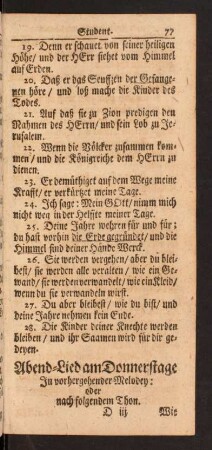 Student. 77
19. Denn er schauet von seiner heiligen
Höhe/ und der HErr siehet vom Himmel
auf Erden.
20. Daß er das Seuffzen der Gefange-
nen höre/ und loß mache die Kinder des
Todes.
21. Auf daß sie zu Zion predigen den
Nahmen des HErrn/ und sein Lob zu Je-
rusalem.
22. Wenn die Völcker zusammen kom-
men/ und die Königreich dem HErrn zu
dienen.
23. Er demüthiget auf dem Wege meine
Krafft/ er verkürtzet meine Tage.
24. Ich sage: Mein GOtt/ nimm mich
nicht weg in der Helffte meiner Tage.
25. Deine Jahre wehren für und für:
du hast vorhin die Erde gegründet/ und die
Himmel sind deiner Hände Werck.
26. Sie werden vergehen/ aber du blei-
best/ sie werden alle veralten/ wie ein Ge-
wand/ sie werden verwandelt/ wie ein Kleid/
wenn du sie verwandeln wirst.
27. Du aber bleibest/ wie du bist/ und
deine Jahre nehmen kein Ende.
28. Die Kinder deiner Knechte werden
bleiben/ und ihr Saamen wird für dir ge-
deyen.
Abend-Lied am Donnerstage
In vorhergehender Melodey:
oder
nach folgendem Thon.
D iij Wie